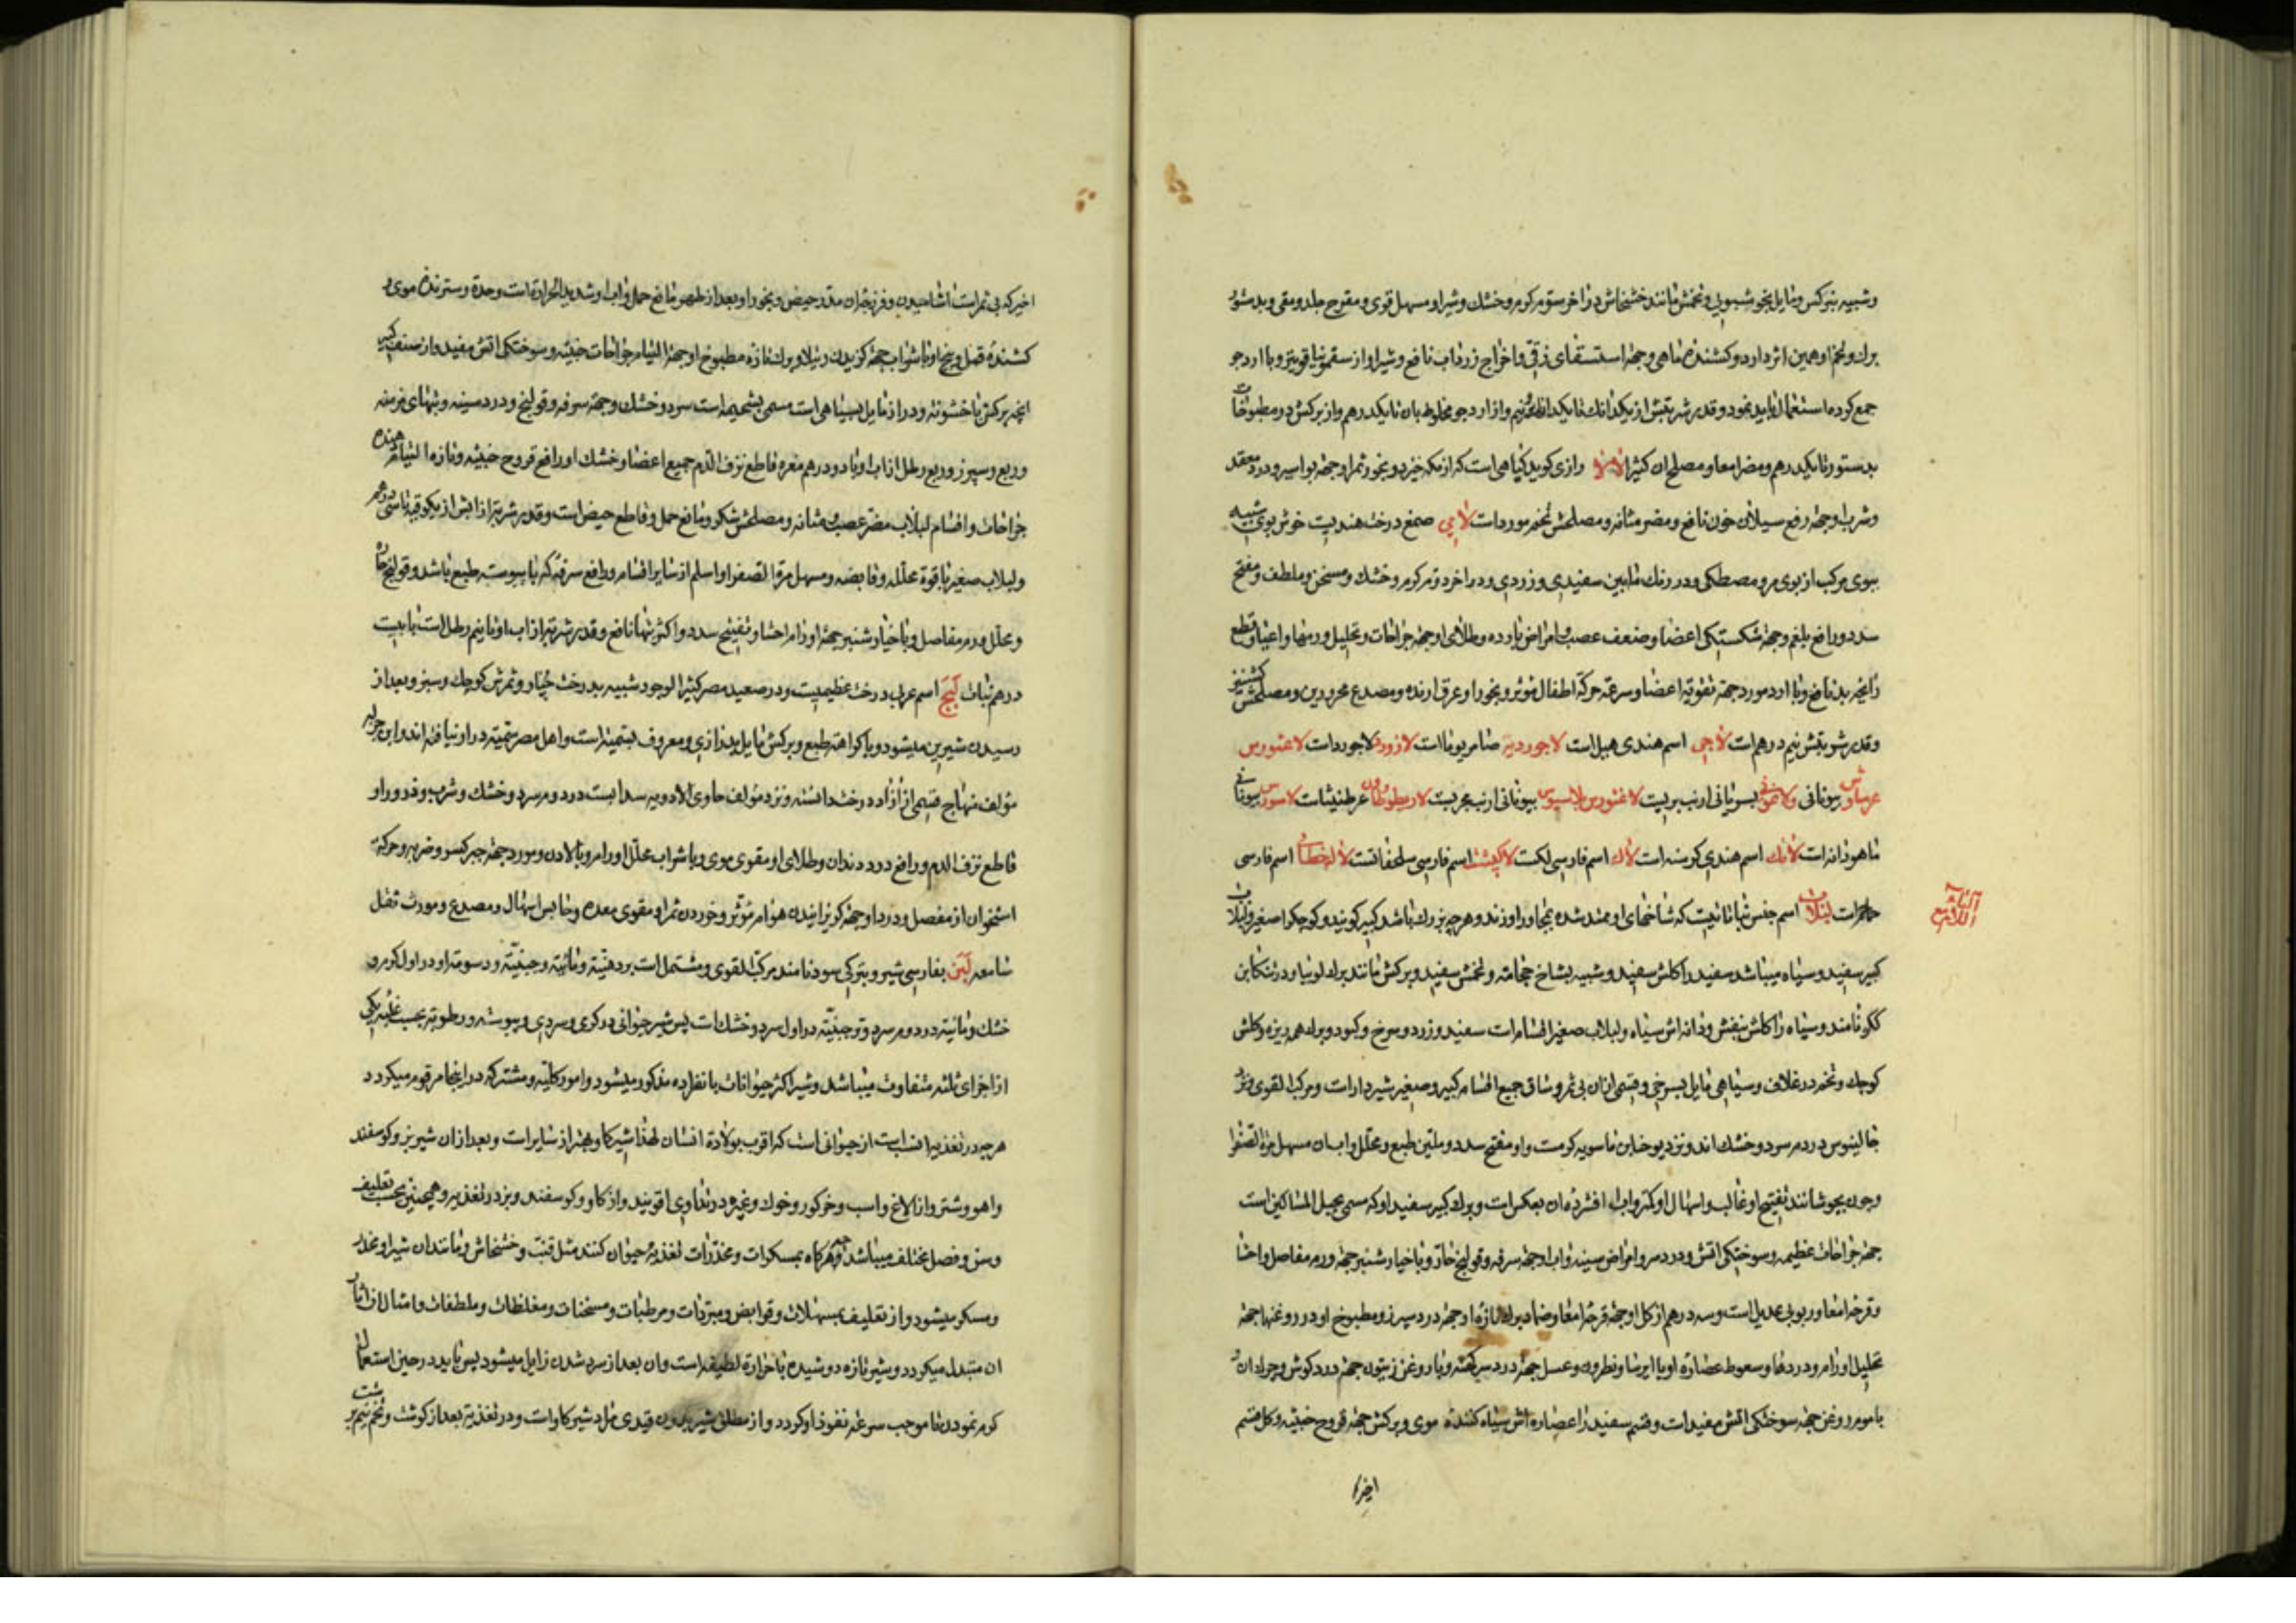 وشبیه بنرکس و مایل بخوشبویی و تخمش مانند خشخاش در آخر سوم گرم و خشک و شیر او مسهل قوی و مقرح جلد و مقی و بدستور
برک و تخم او همین اثر دارد و کشنده ماهی و جهة استسقای زقی و اخراج زرداب نافع و شیر او از سقمونیا قویتر و با آرد جو
جمع کرده استعمال باید نمود و قدر شربتش از یکدانک تا یکدانک و نیم و از آرد جو مخلوط بان تا یکدرهم و از برکش در مطبوخات
بدستور تا یکدرهم و مضر امعا و مصلح ان کثیرا رازی کوید کیاهی است که از مکه خیزد و بخور ثمر او جهة بواسیر و درد مقعد
و شرب او جهة رفع سیلان خون نافع و مضر مثانه و مصلحش تخم مورد است لامی صمغ درخت هندیست خوش بوی شبیه
ببوی مرکب از بوی مر و مصطکی و در رنک مابین سفیدی و زردی و در آخر دوم گرم و خشک و مسخن و ملطف و مفتح
سدد و رافع بلغم و جهة شکستکی اعضا و ضعف عصب و امراض بارده و طلای او جهة جراحات و تحلیل ورمها و اعیا و قطع
رایحه بد نافع و با آرد مورد جهة تقویة اعضا و سرعة حرکة اطفال موثر و بخور او عرق آرنده و مصدع محرورین و مصلحش کشنیز
و قدر شربتش نیم درهم است لاجی اسم هندی هیل است لاجوردیه ضامریوما است لازورد لاجورد است لاغنورس
بیونانی و بسریانی ارنب بریست بیونانی ارنب بحریست عرطنیثا است
ماهودانه است لانک اسم هندی کرسنه است لاک اسم فارسی لکست لاکپشت اسم فارسی سلحفاتست اسم فارسی
است لبلاب اسم جنس نباتاتیست که شاخهای او ممتد شده بمجاور آوزند و هر چه بزرک باشد کبیر کویند و کوچکرا صغیر و لبلاب
کبیر سفید و سیاه میباشد سفید را کلش سفید و شبیه بشاخ حجامة و تخمش سفید و برکش مانند برک لوبیا و در تنکابن
ککو نامند و سیاه را کلش بنفش و دانه اش سیاه و لبلاب صغیر اقسام است سفید و زرد و سرخ و کبود و برک همه ریزه و کلش
کوچک و تخم در غلاف و سیاهی مایل بسرخی و قسمی از ان بی ثمر و ساق جمیع اقسام کبیر و صغیر شیردار است و مرکب القوی و نزد
جالینوس در دوم سرد و خشک اند و نزد یوحنا بن ماسویه کرمست و او مفتح سدد و ملین طبع و محلل و آب ان مسهل مرة الصفرا
و چون بجوشانند تفتیح او غالب و اسهال او کمتر و آب افشرده ان بعکس است و برک کبیر سفید او که مسمی بحبل المساکین است
جهة جراحات عظیمه و سوختکی آتش و درد سر و امراض سینه و آب او جهة سرفه و قولنج حار و با خیار شنبر جهة ورم مفاصل و احشا
و قرحه امعا و ربو بی عدیل است و سه درهم از کل او جهة قرحه امعا و ضماد برک تازه او جهة درد سپرز و مطبوخ او در روغنها جهة
تحلیل اورام و دردها و سعوط عصاره او با ایرسا و نطرون و عسل جهة درد سر کهنه و با روغن زیتون جهة درد کوش و چرک ان
با موم روغن جهة سوختکی آتش مفید است و قسم سفید را عصاره اش سیاه کننده موی و برکش جهة قروح خبیثه و کل قسم
اخیر که
اخیر که بی ثمر است آشامیدن و فرزجه ان مدر حیض و بخور او بعد از طهر مانع حمل و آب او شدید الحرارة است وحدة و سترنده موی و
کشنده قمل و بیخ او با شراب جهة کزیدن رتیلا و برک تازه مطبوخ او جهة التیام جراحات خبیثه و سوختکی آتش مفید و از صنف کبیر
آنچه برکش با خشونة و دراز مایل بسیاهی است مسمی بشحیمه است سرد و خشک و جهة سرفه و قولنج و درد سینه و تبهای مزمنه
و ربع و سپرز و ربع رطل از آب او با دو درهم مغره قاطع نزف الدم جمیع اعضا و خشک او رافع قروح خبیثه و تازه التیام دهنده
جراحات و اقسام لبلاب مضر عصب و مثانه و مصلحش شکر و مانع حمل و قاطع حیض است و قدر شربة از آبش از یکوقیه تا سی درهم
و لبلاب صغیر با قوة محلله و قابضه و مسهل مرة الصفرا و اسلم از سایر اقسام و رافع سرفه که با یبوست طبع باشد و قولنج حار
و محلل ورم مفاصل و با خیار شنبر جهة اورام احشا و تفتیح سدد و اکثر تبها نافع و قدر شربة از آب او تا نیم رطل است با بیست
درهم نبات لبخ اسم عربی درخت عظیمیست و در صعید مصر کثیر الوجود شبیه بدرخت چنار و ثمرش کوچک و سبز و بعد از
رسیدن شیرین میشود و با کراهة طبع و برکش مایل بدرازی و معروف بستمیة است و اهل مصر سمیة در او نیافته اند و ابن جزله
مؤلف منهاج قسمی از آزاد درخت دانسته و نزد مؤلف حاوی الادویه سدابست در دوم سرد و خشک و شرب و ذرور او
قاطع نزف الدم و رافع درد دندان و طلای او مقوی موی و با شراب محلل اورام و با لادن و مورد جهة جبر کسر و ضربه و حرکة
استخوان از مفصل و درد او جهة کریزانیدن هوام مؤثر و خوردن ثمر او مقوی معده و حابس اسهال و مصدع و مورث ثقل
سامعه لبن بفارسی شیر و بترکی سود نامند مرکب القوی و مشتمل است بر دهنیة و مائیة و جبنیة و دسومة او در اول کرم و
خشک و مائیة در دوم سرد و تر و جبنیة در اول سرد و خشک است پس شیر حیوانی در کرمی و سردی و یبوسة و رطوبة بحسب غلبه یکی
از اجزای ثلثه متفاوت میباشد و شیر اکثر حیوانات بانفراده مذکور میشود و امور کلیه و مشترکه در اینجا مرقوم میکردد
هر چه در تغذیه انسب است از حیوانی است که اقرب بولادة انسان لهذا شیر کاو بهتر از سایر است و بعد از ان شیر بز و کوسفند
و آهو و شتر و از الاغ و اسب و خر کور و خوک و غیره در تداوی اقویند و از کاو و کوسفند و بز در تغذیه و همچنین بحسب تعلیف
و سن و فصل مختلف میباشد و هرکاه بمسکرات و مخدرات تغذیه حیوان کنند مثل قنب و خشخاش و مانند ان شیر او مخدر
و مسکر میشود و از تعلیف بمسهلات و قوابض و مبردات و مرطبات و مسخنات و مغلظات و ملطفات و امثال ان آثار
ان متبدل میکردد و شیر تازه دوشیده با حرارة لطیفه است و ان بعد از سرد شدن زایل میشود پس باید در حین استعمال
کرم نمودن تا موجب سرعة نفوذ او کردد و از مطلق شیر بدون قیدی مراد شیر کاو است و در تغذیة بعد از کوشت و تخم نیم برشت